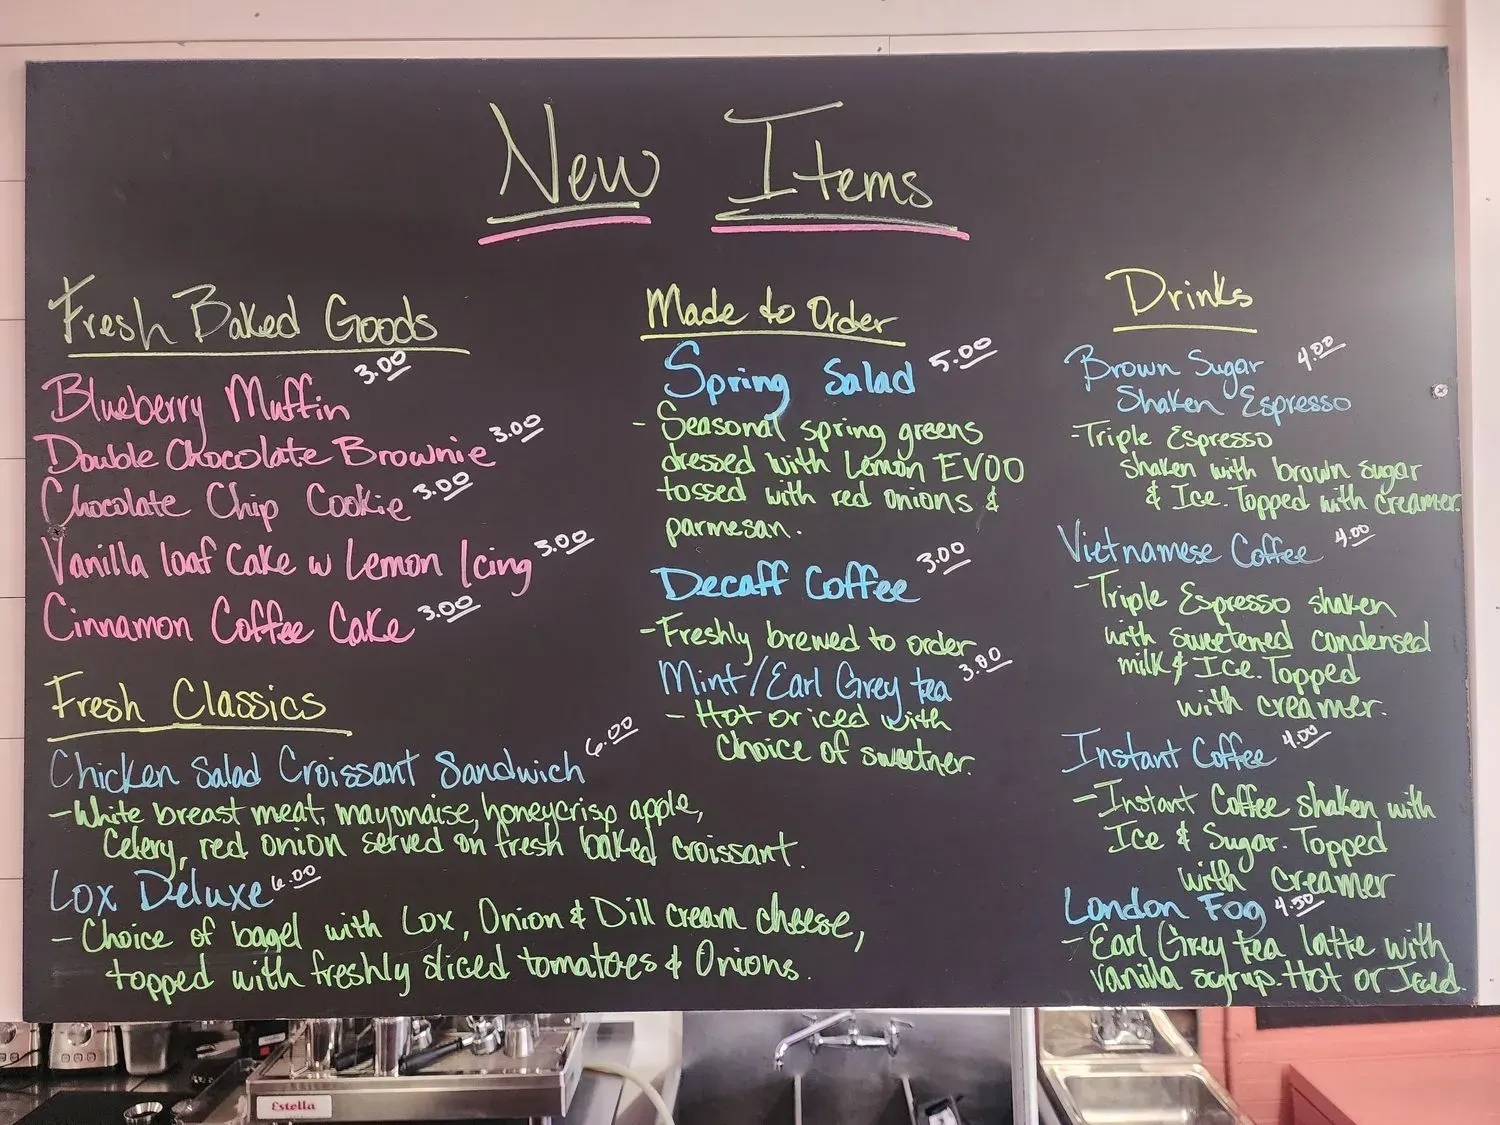 New Items
Fresh Baked Goods
Blueberry Muffin 3.00
Double Chocolate Brownie 3.00
Chocolate Chip Cookie 3.00
Vanilla loaf Cake w Lemon Icing 3.00
Cinnamon Coffee Cake 3.00
Fresh Classics
Chicken Salad Croissant Sandwich 6.00
- White breast meat, mayonaise, honeycrisp apple,
Celery, red onion served on fresh baked croissant.
Lox Deluxe 6.00
- Choice of bagel with Lox, Onion & Dill cream cheese,
topped with freshly sliced tomatoes & Onions.
Made to Order
Spring Salad 5.00
- Seasonal spring greens
dressed with Lemon EVOO
tossed with red onions &
parmesan.
Decaff Coffee 3.00
- Freshly brewed to order
Mint/Earl Grey tea 3.00
- Hot or iced with
Choice of sweetner.
Drinks
Brown Sugar 4.00
Shaken Espresso
- Triple Espresso
shaken with brown sugar
& Ice. Topped with creamer.
Vietnamese Coffee 4.00
- Triple Espresso shaken
with sweetened condensed
milk & Ice. Topped
with creamer.
Instant Coffee 4.00
- Instant Coffee shaken with
Ice & Sugar. Topped
with creamer
London Fog 4.50
- Earl Grey tea latte with
vanilla syrup. Hot or Iced.
Estella